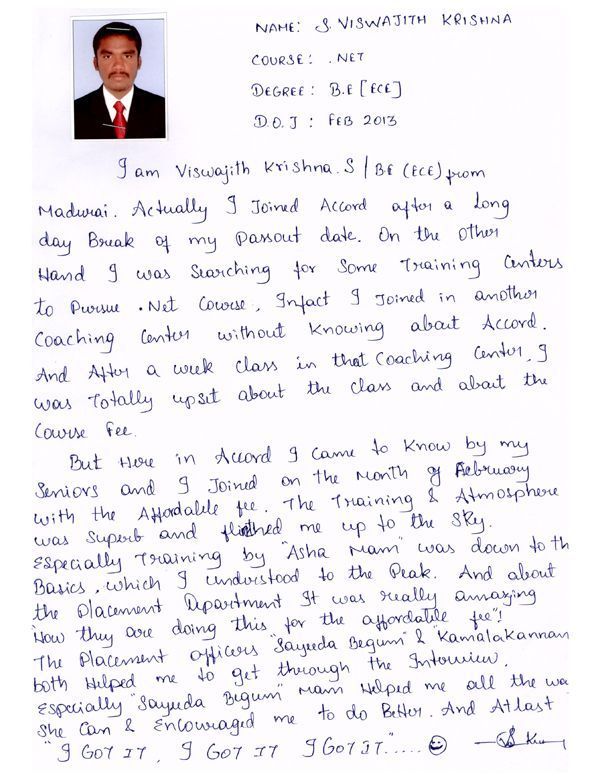 NAME: S. VISWAJITH KRISHNA
COURSE: .NET
DEGREE: B.E [ECE]
D.O.J : FEB 2013
I am Viswajith Krishna.S / BE (ECE) from
Madurai. Actually I Joined Accord after a Long
day Break of my Passout date. On the other
Hand I was Searching for Some Training Centers
to Pursue .Net Course, Infact I Joined in another
Coaching Center without Knowing about Accord.
And After a week Class in that Coaching Center, I
was Totally upset about the Class and about the
Course Fee.
But Here in Accord I Came to Know by my
Seniors and I Joined on the Month of February
with the Affordable fee. The Training & Atmosphere
was Superb and me up to the Sky.
Especially Training by "Asha Mam" was down to th
Basics, which I understood to the Peak. And about
the Placement Department It was really amazing
"How they are doing this for the affordable fee"!
The Placement officers "Sayeeda Begum" & "Kamalakannan
both Helped me to get through the Interview.
Especially "Sayeeda Begum" Mam Helped me all the wa
She Can & Encouraged me to do Better. And At last
"I GOT IT, I GOT IT I GOT IT".....